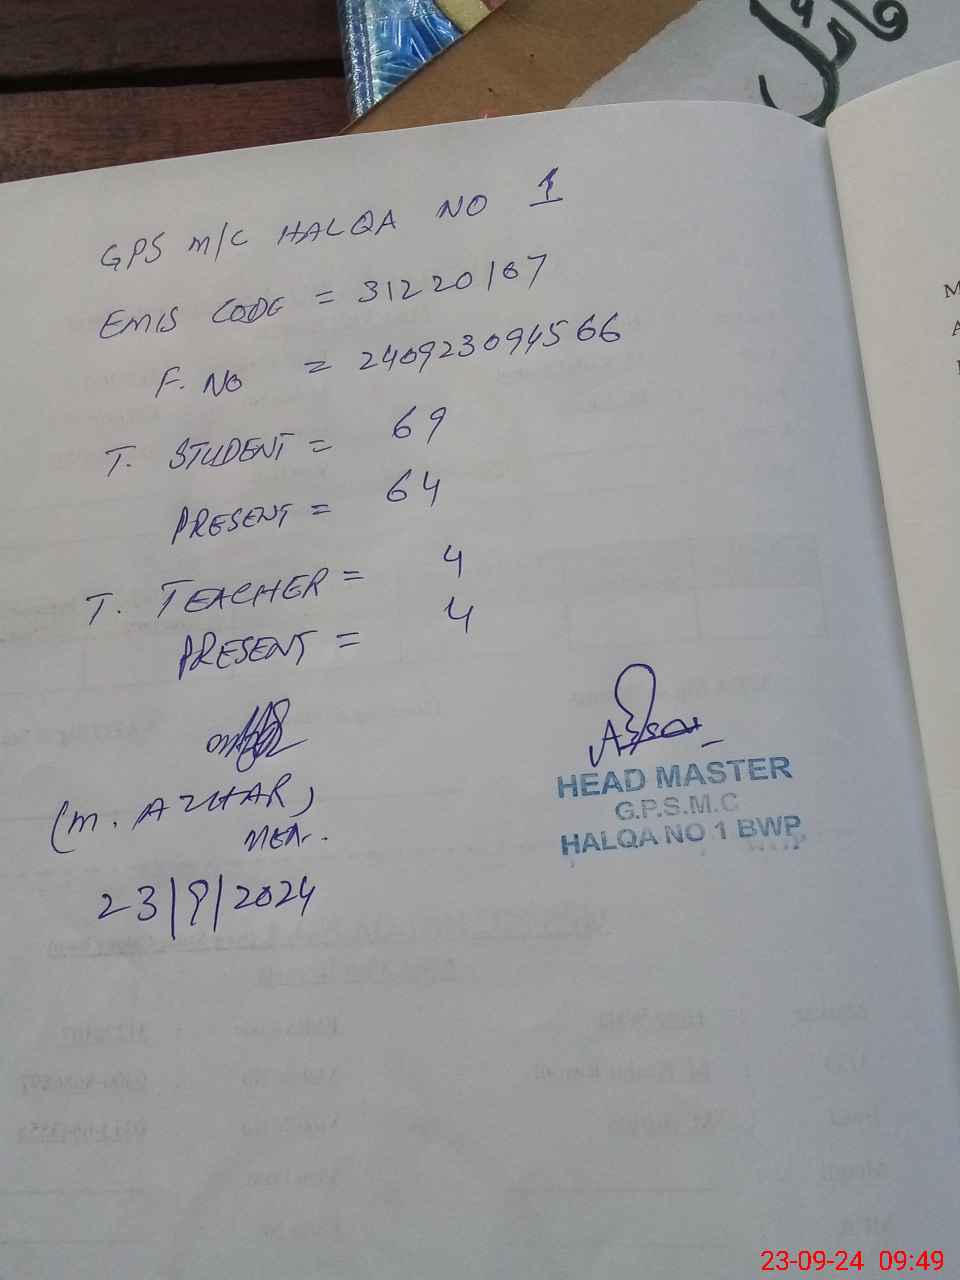 فائل
GPS M/C HALQA NO 1
EMIS CODE = 31220167
F. NO = 240923094566
T. STUDENT = 69
PRESENT = 64
T. TEACHER = 4
PRESENT = 4
(M. AZHAR)
MEA.
23/9/2024
HEAD MASTER
G.P.S.M.C
HALQA NO 1 BWP
23-09-24 09:49